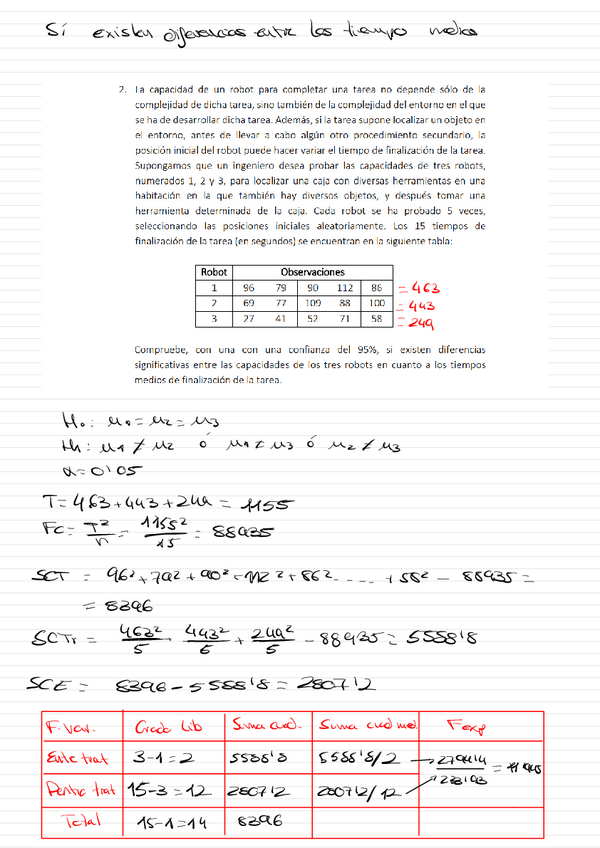 Sí existen diferencias entre los tiempo medios
2. La capacidad de un robot para completar una tarea no depende sólo de la
complejidad de dicha tarea, sino también de la complejidad del entorno en el que
se ha de desarrollar dicha tarea. Además, si la tarea supone localizar un objeto en
el entorno, antes de llevar a cabo algún otro procedimiento secundario, la
posición inicial del robot puede hacer variar el tiempo de finalización de la tarea.
Supongamos que un ingeniero desea probar las capacidades de tres robots,
numerados 1, 2 y 3, para localizar una caja con diversas herramientas en una
habitación en la que también hay diversos objetos, y después tomar una
herramienta determinada de la caja. Cada robot se ha probado 5 veces,
seleccionando las posiciones iniciales aleatoriamente. Los 15 tiempos de
finalización de la tarea (en segundos) se encuentran en la siguiente tabla:
Robot Observaciones
1 96 79 90 112 86 = 463
2 69 77 109 88 100 = 443
3 27 41 52 71 58 = 249
Compruebe, con una con una confianza del 95%, si existen diferencias
significativas entre las capacidades de los tres robots en cuanto a los tiempos
medios de finalización de la tarea.
H₀: μ₁ = μ₂ = μ₃
H₁: μ₁ ≠ μ₂ ó μ₁ ≠ μ₃ ó μ₂ ≠ μ₃
α = 0'05
T = 463 + 443 + 249 = 1155
Fc = T²/n = 1155²/15 = 88935
SCT = 96² + 79² + 90² + 112² + 86² ..... + 58² - 88935 =
= 8396
SCTr = 463²/5 + 443²/5 + 249²/5 - 88935 = 5588'8
SCE = 8396 - 5588'8 = 2807'2
F. Var. Grado Lib Suma cuad. Suma cuad med. F exp
Entre trat 3-1 = 2 5588'8 5588'8/2 → 2794'4
Dentro trat 15-3 = 12 2807'2 2807'2/12 → 233'93 = 11'945
Total 15-1 = 14 8396